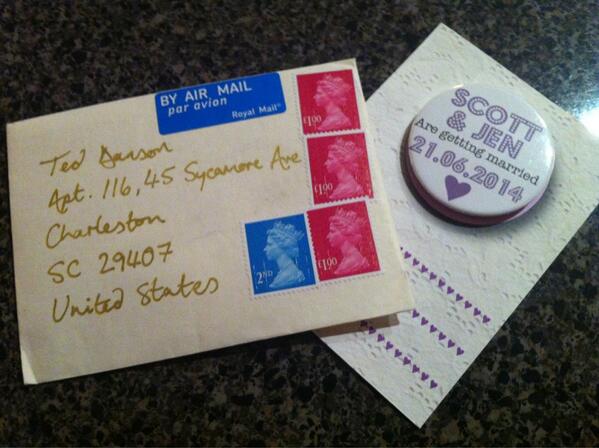 BY AIR MAIL
par avion
Royal Mail®
£1.00
£1.00
£1.00
2ND
Ted
Apt. 116, 45 Sycamore Ave
Charleston
SC 29407
United States
SCOTT
& JEN
Are getting married
21.06.2014